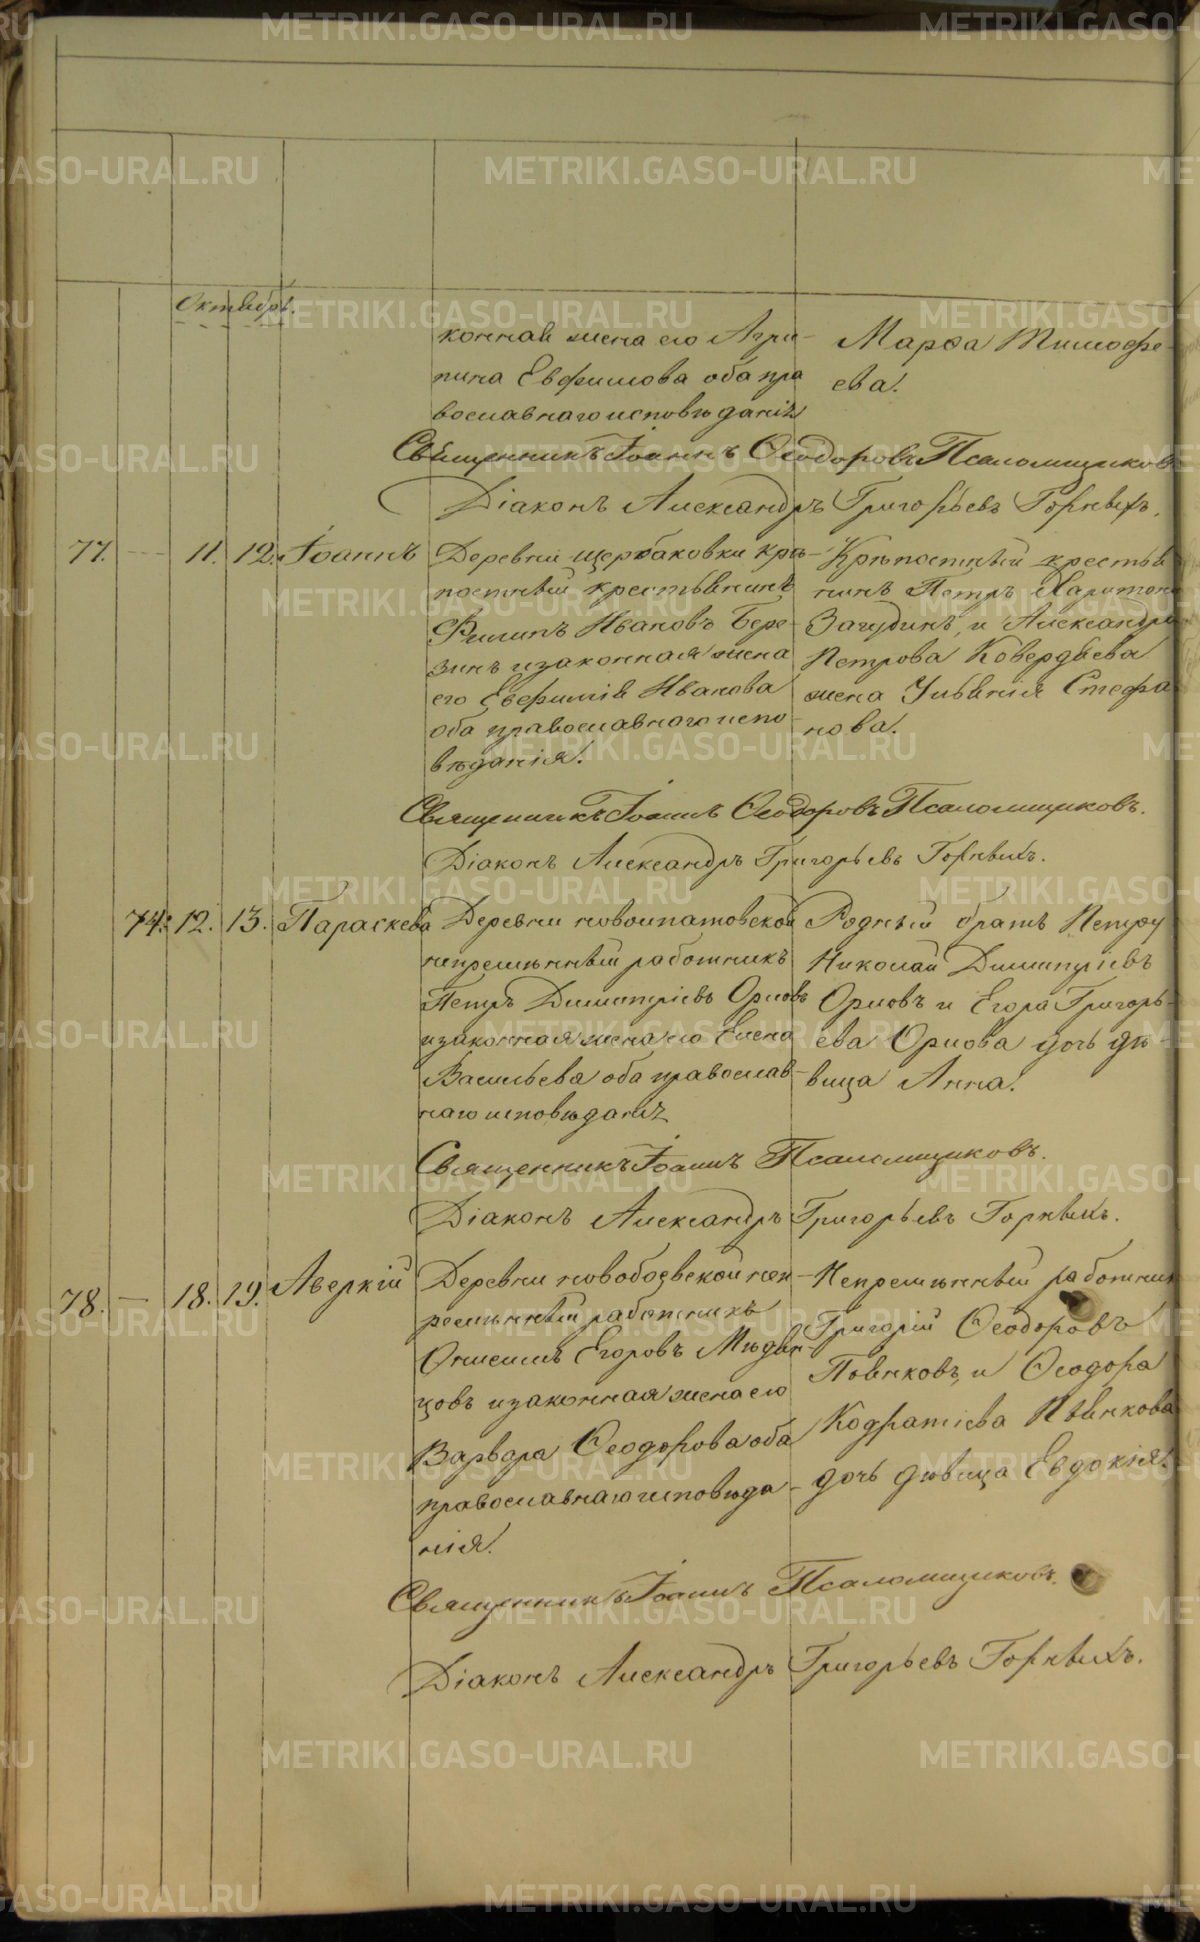 Октябрь.
конная жена его Агри-
пина Евфимова оба пра
вославнаго исповѣданія
Марѳа Тимофе-
ева.
Священникъ Іоаннъ Ѳеодоровъ Псаломщиковъ
Діаконъ Александръ Григорьевъ Горныхъ.
77. — 11. 12. Іоаннъ
Деревни Щербаковки крѣ-
постный крестьянинъ
Филипъ Ивановъ Бере-
зинъ и законная жена
его Евфимія Иванова
оба православнаго испо-
вѣданія.
Крѣпостный крестья
нинъ Петръ Харитоно
Загудинъ, и Александра
Петрова Ковердяева
жена Ульянія Стефа
нова.
Священникъ Іоаннъ Ѳеодоровъ Псаломщиковъ.
Діаконъ Александръ Григорьевъ Горныхъ.
74. 12. 13. Параскева
Деревни Новоипатовской
непремѣнный работникъ
Петръ Димитріевъ Орловъ
и законная жена его Елена
Васильева оба православ-
наго исповѣданія
Родный братъ Петру
Николай Димитріевъ
Орловъ и Егора Григорь-
ева Орлова дочь дѣ-
вица Анна.
Священникъ Іоаннъ Псаломщиковъ.
Діаконъ Александръ Григорьевъ Горныхъ.
78. — 18. 19. Аверкій
Деревни Новобоевской неп-
ремѣнный работникъ
Онисимъ Егоровъ Мѣдвн-
цовъ и законная жена его
Варвара Ѳеодорова оба
православнаго исповѣда-
нія.
Непремѣнный работник
Григорій Ѳеодоровъ
Пьянковъ, и Ѳеодора
Кодратіева Пьянкова
дочь дѣвица Евдокія.
Священникъ Іоаннъ Псаломщиковъ.
Діаконъ Александръ Григорьевъ Горныхъ.
METRIKI.GASO-URAL.RU